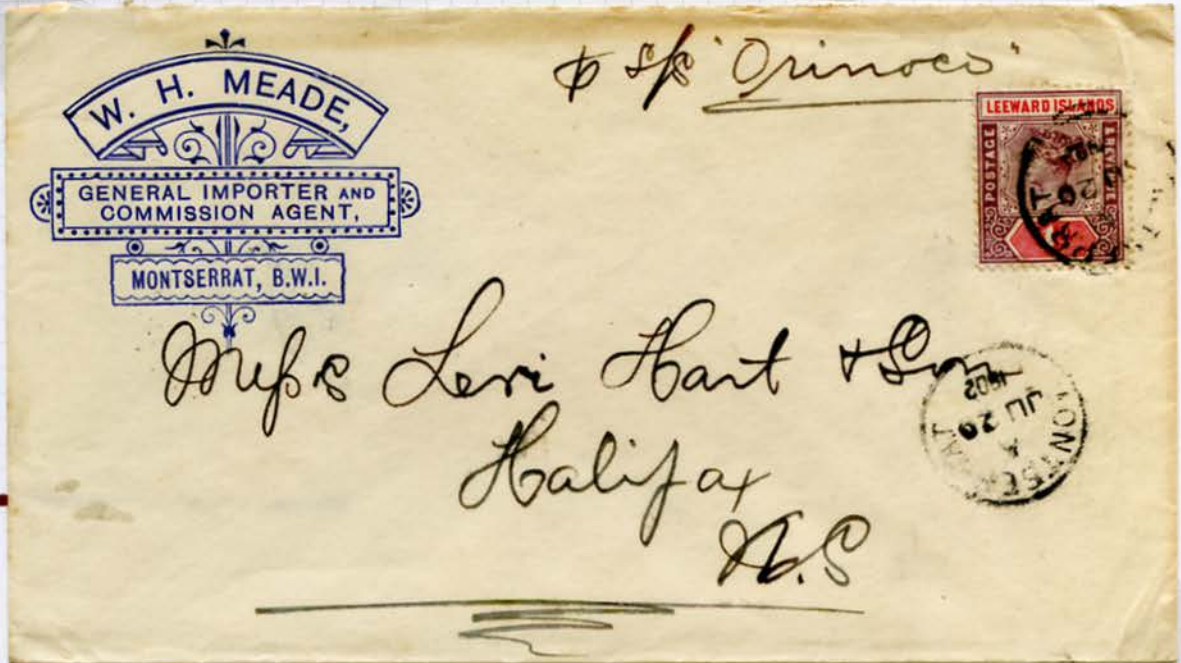 W. H. MEADE,
GENERAL IMPORTER AND
COMMISSION AGENT,
MONTSERRAT, B.W.I.
p s/s "Orinoco"
LEEWARD ISLANDS
POSTAGE
Messrs Levi Hart & Son
Halifax
N.S
MONTSERRAT
A
JU 20
1902